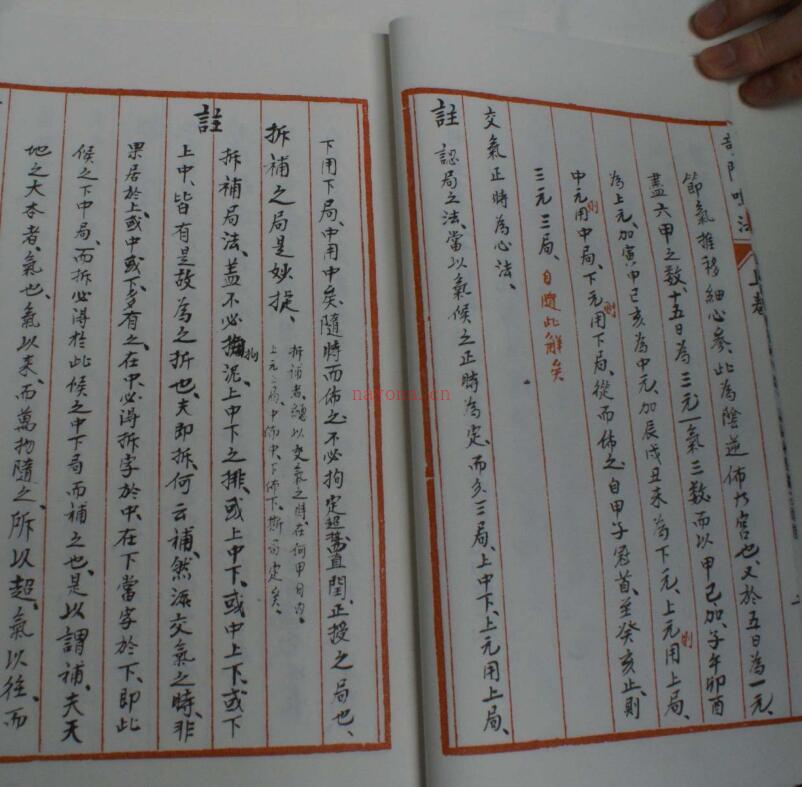 上卷
節氣推移細心參此為陰逆佈九宮也、又於五日為一元、
盡六甲之数、十五日為三元、一氣三数、而以甲己加子午卯酉
為上元、加寅申己亥為中元、加辰戌丑未為下元、上元則用上局、
中元則用中局、下元則用下局、從而佈之、自甲子冠首、至癸亥止、則
三元三局、自隨此解矣
交氣正時為心法、
註 認局之法、當以氣候之正時為定、而分三局、上中下、上元用上局、
下用下局、中用中矣、隨時而佈之、不必拘定超舊直閏、正授之局也、
拆補之局是妙捉
拆補者、以交氣之時、在何甲日内、
上元上局、中佈中下佈下、斯局定矣、
註
拆補局法、蓋不必拘泥、上中下之排、或上中下、或中上下、或下
上中、皆有是故為之折也、夫即拆、何云補、然派交氣之時、非
果居於上、或中或下、多有之、在中、必得拆字於中、在下當字於下、即此
候之下中局、而拆必得於此候之中下局而補之也、是以謂補、夫天
地之大本者、氣也、氣以来、而萬物隨之、所以超、氣以往、而
nayona.cn